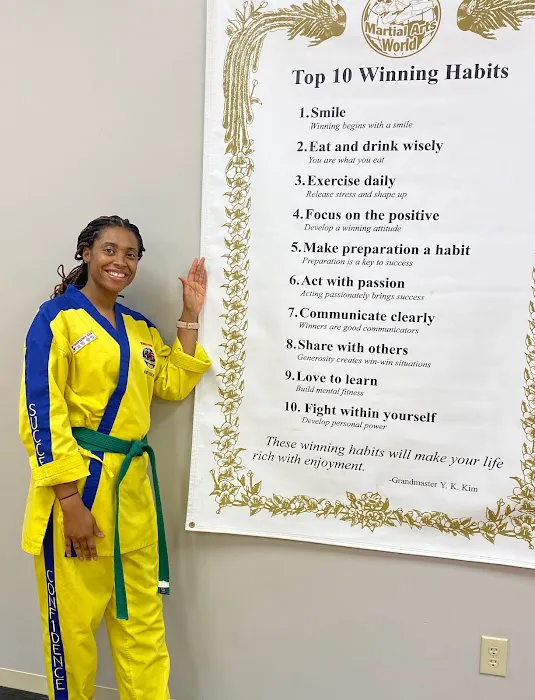 Martial Arts
World
Top 10 Winning Habits
1. Smile
Winning begins with a smile
2. Eat and drink wisely
You are what you eat
3. Exercise daily
Release stress and shape up
4. Focus on the positive
Develop a winning attitude
5. Make preparation a habit
Preparation is a key to success
6. Act with passion
Acting passionately brings success
7. Communicate clearly
Winners are good communicators
8. Share with others
Generosity creates win-win situations
9. Love to learn
Build mental fitness
10. Fight within yourself
Develop personal power
These winning habits will make your life
rich with enjoyment.
-Grandmaster Y. K. Kim
SUCCE
CONFIDENCE